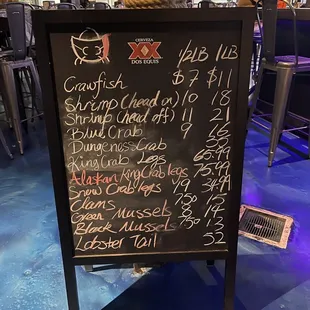 CERVEZA
XX
DOS EQUIS
1/2LB 1LB
Crawfish $7 $11
Shrimp (head on) 10 18
Shrimp (head off) 11 21
Blue Crab 9 16
Dungeness Crab
King Crab Legs 65.99
Alaskan King Crab legs 75.99
Snow Crab legs 19 34.99
Clams 7.50 15
Green Mussels 8 14
Black Mussels 7.50 13
Lobster Tail 52